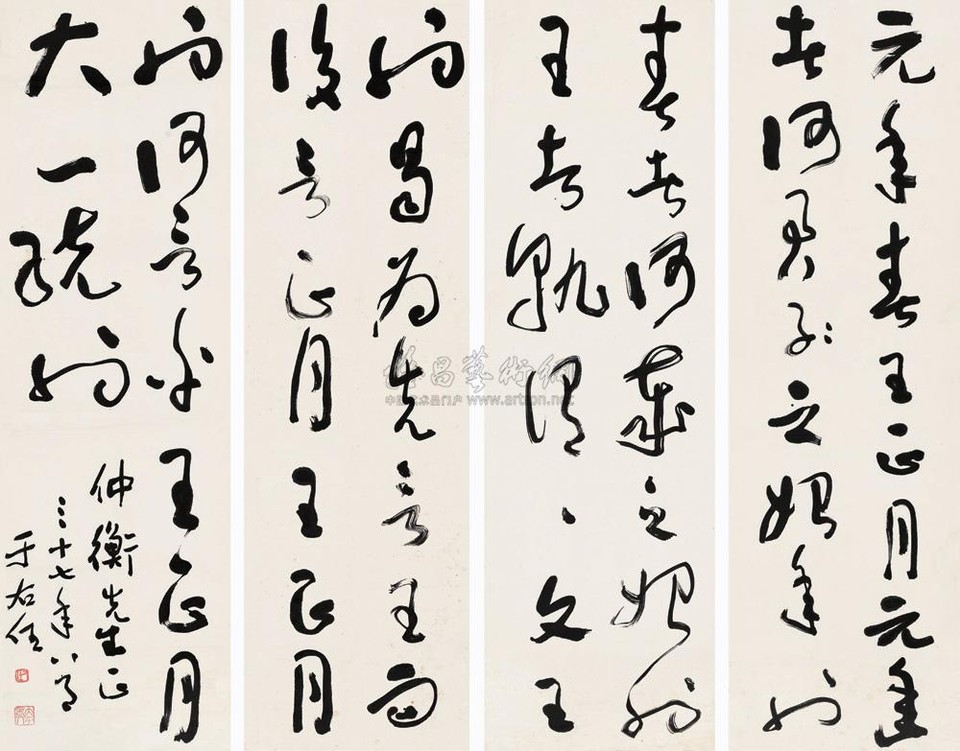 元年春王正月元年
者何君子之始年也
春者何歲之始也
王者孰謂、文王
也曷為先言王而
後言正月王正月
也何言乎王正月
大一統也
仲衡先生正
三十七年八
于右任
雅昌藝術網
中国艺术品门户 www.artron.net